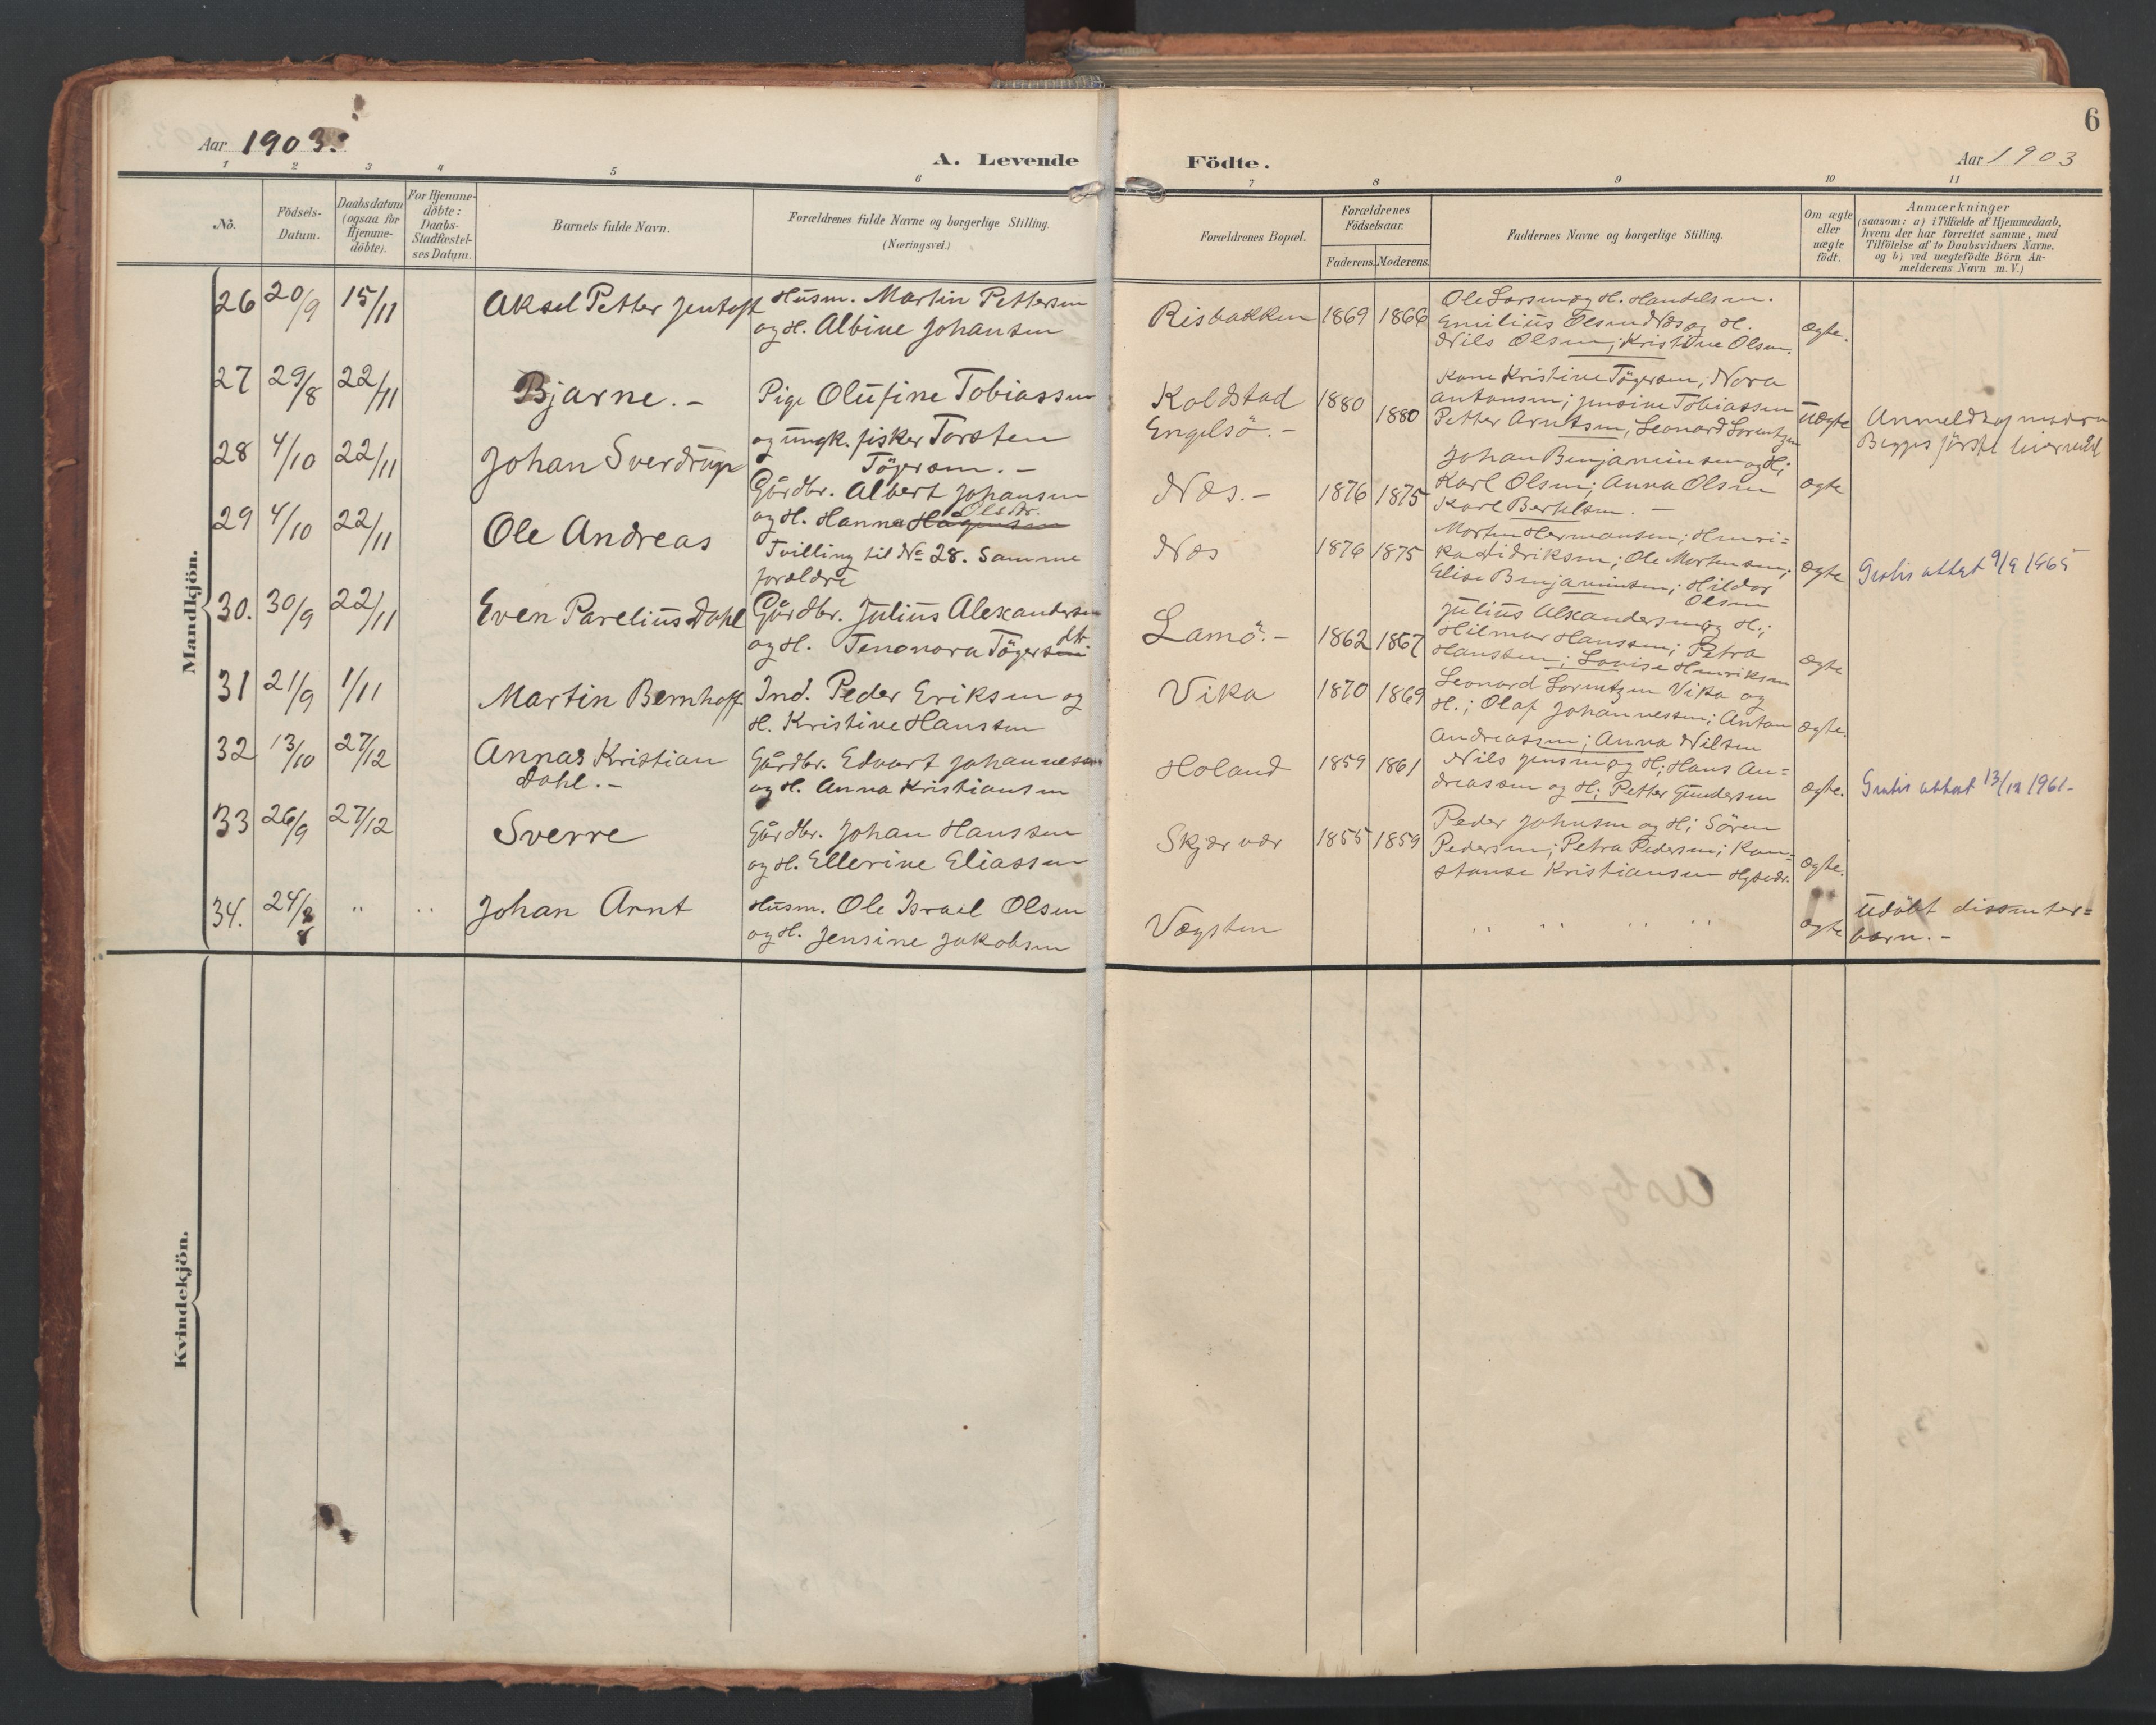 Aar 1903.
A. Levende
1 2 3 4 5 6
Nò.
Födsels-
Datum.
Daabsdatum
(ogsaa for
Hjemme-
döbte).
For Hjemme-
döbte:
Daabs-
Stadfæstel-
ses Datum.
Barnets fulde Navn.
Forældrenes fulde Navne og borgerlige Stilling.
(Næringsvei.)
Mandkjön.
26 20/9 15/11 Aksel Petter Jentoft Husm. Martin Pettersen
og H. Albine Johansen
27 29/8 22/11 Bjarne.- Pige Olufine Tobiassen
og ungk. fisker Torsten
Tögersen.-
28 4/10 22/11 Johan Sverdrup Gårdbr. Albert Johansen
og H. Hanna Hågensen Olsdr.
29 4/10 22/11 Ole Andreas Tvilling til No 28. Samme
forældre
30. 30/9 22/11 Even Parelius Dahl Gårdbr. Julius Alexandersen
og H. Tenonora Tögersen dtr
31 21/9 1/11 Martin Bernhoff Ind. Peder Eriksen og
H. Kristine Hanssen
32 13/10 27/12 Annas Kristian
Dahl.-
Gårdbr. Edvart Johannessen
og H. Anna Kristiansen
33 26/9 27/12 Sverre Gårdbr. Johan Hanssen
og H. Ellerine Eliassen
34. 24/8 " " Johan Arnt Husm. Ole Israel Olsen
og H. Jensine Jakobsen
Kvindekjön.
6
Födte.
Aar 1903
7 8 9 10 11
Forældrenes Bopæl.
Forældrenes
Födselsaar.
Faderens. Moderens.
Faddernes Navne og borgerlige Stilling.
Om ægte
eller
uægte
födt.
Anmærkninger
(saasom: a) i Tilfælde af Hjemmedaab,
hvem der har forrettet samme, med
Tilföielse af to Daabsvidners Navne,
og b) ved uægtefödte Börn An-
melderens Navn m. V.)
Risbakken 1869 1866 Ole Larsen og H. Handelsm.
Emilius Olsen Næs og H.
Nils Olsen; Kristine Olsen.
ægte.
Koldstad
Engelsö.-
1880 1880
Kone Kristine Tögersen; Nora
Antonsen; Jensine Tobiassen
Petter Arntsen, Leonard Lorentzen
uægte
Anmeldt af moderen
Begges förste leiermål
Næs.- 1876 1875
Johan Benjaminsen og H;
Karl Olsen; Anna Olsen
Karl Bertelsen.-
ægte
Næs 1876 1875
Morten Hermansen; Henri-
ka Didriksen; Ole Mortensen;
Elise Benjaminsen; Hildor
Olsen
ægte Gratis attest 9/9 1965
Lamö.- 1862 1867
Julius Alexandersen og H.;
Hilmar Hanssen; Petra
Hanssen; Lovise Henriksen
ægte
Vika 1870 1869
Leonard Lorentzen Vika og
H.; Olaf Johannessen; Anton
Andreassen; Anna Nilsen
ægte.
Holand 1859 1861
Nils Jensen og H; Hans An=
dreassen og H; Petter Gundersen
ægte. Gratis attest 13/12 1961-
Skjærvær 1855 1859
Peder Johnsen og H; Sören
Pedersen; Petra Pedersen; Kon-
stanse Kristiansen
ægte.
Vægsten " " " " ægte
Udöbt dissenter=
barn.-